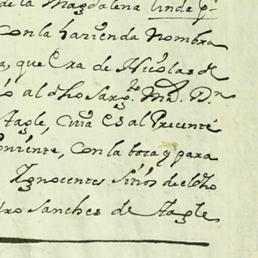 de la Magdalena linda p.r
con la hazienda Nombra
a, que Era de Nicolas d
o al dho Sarg.to M.r D.n
Tagle, cuia es al Precente
oniente, con la toca y para
Ygnocentes Sitios de el dho
dro Sanches de Tagle